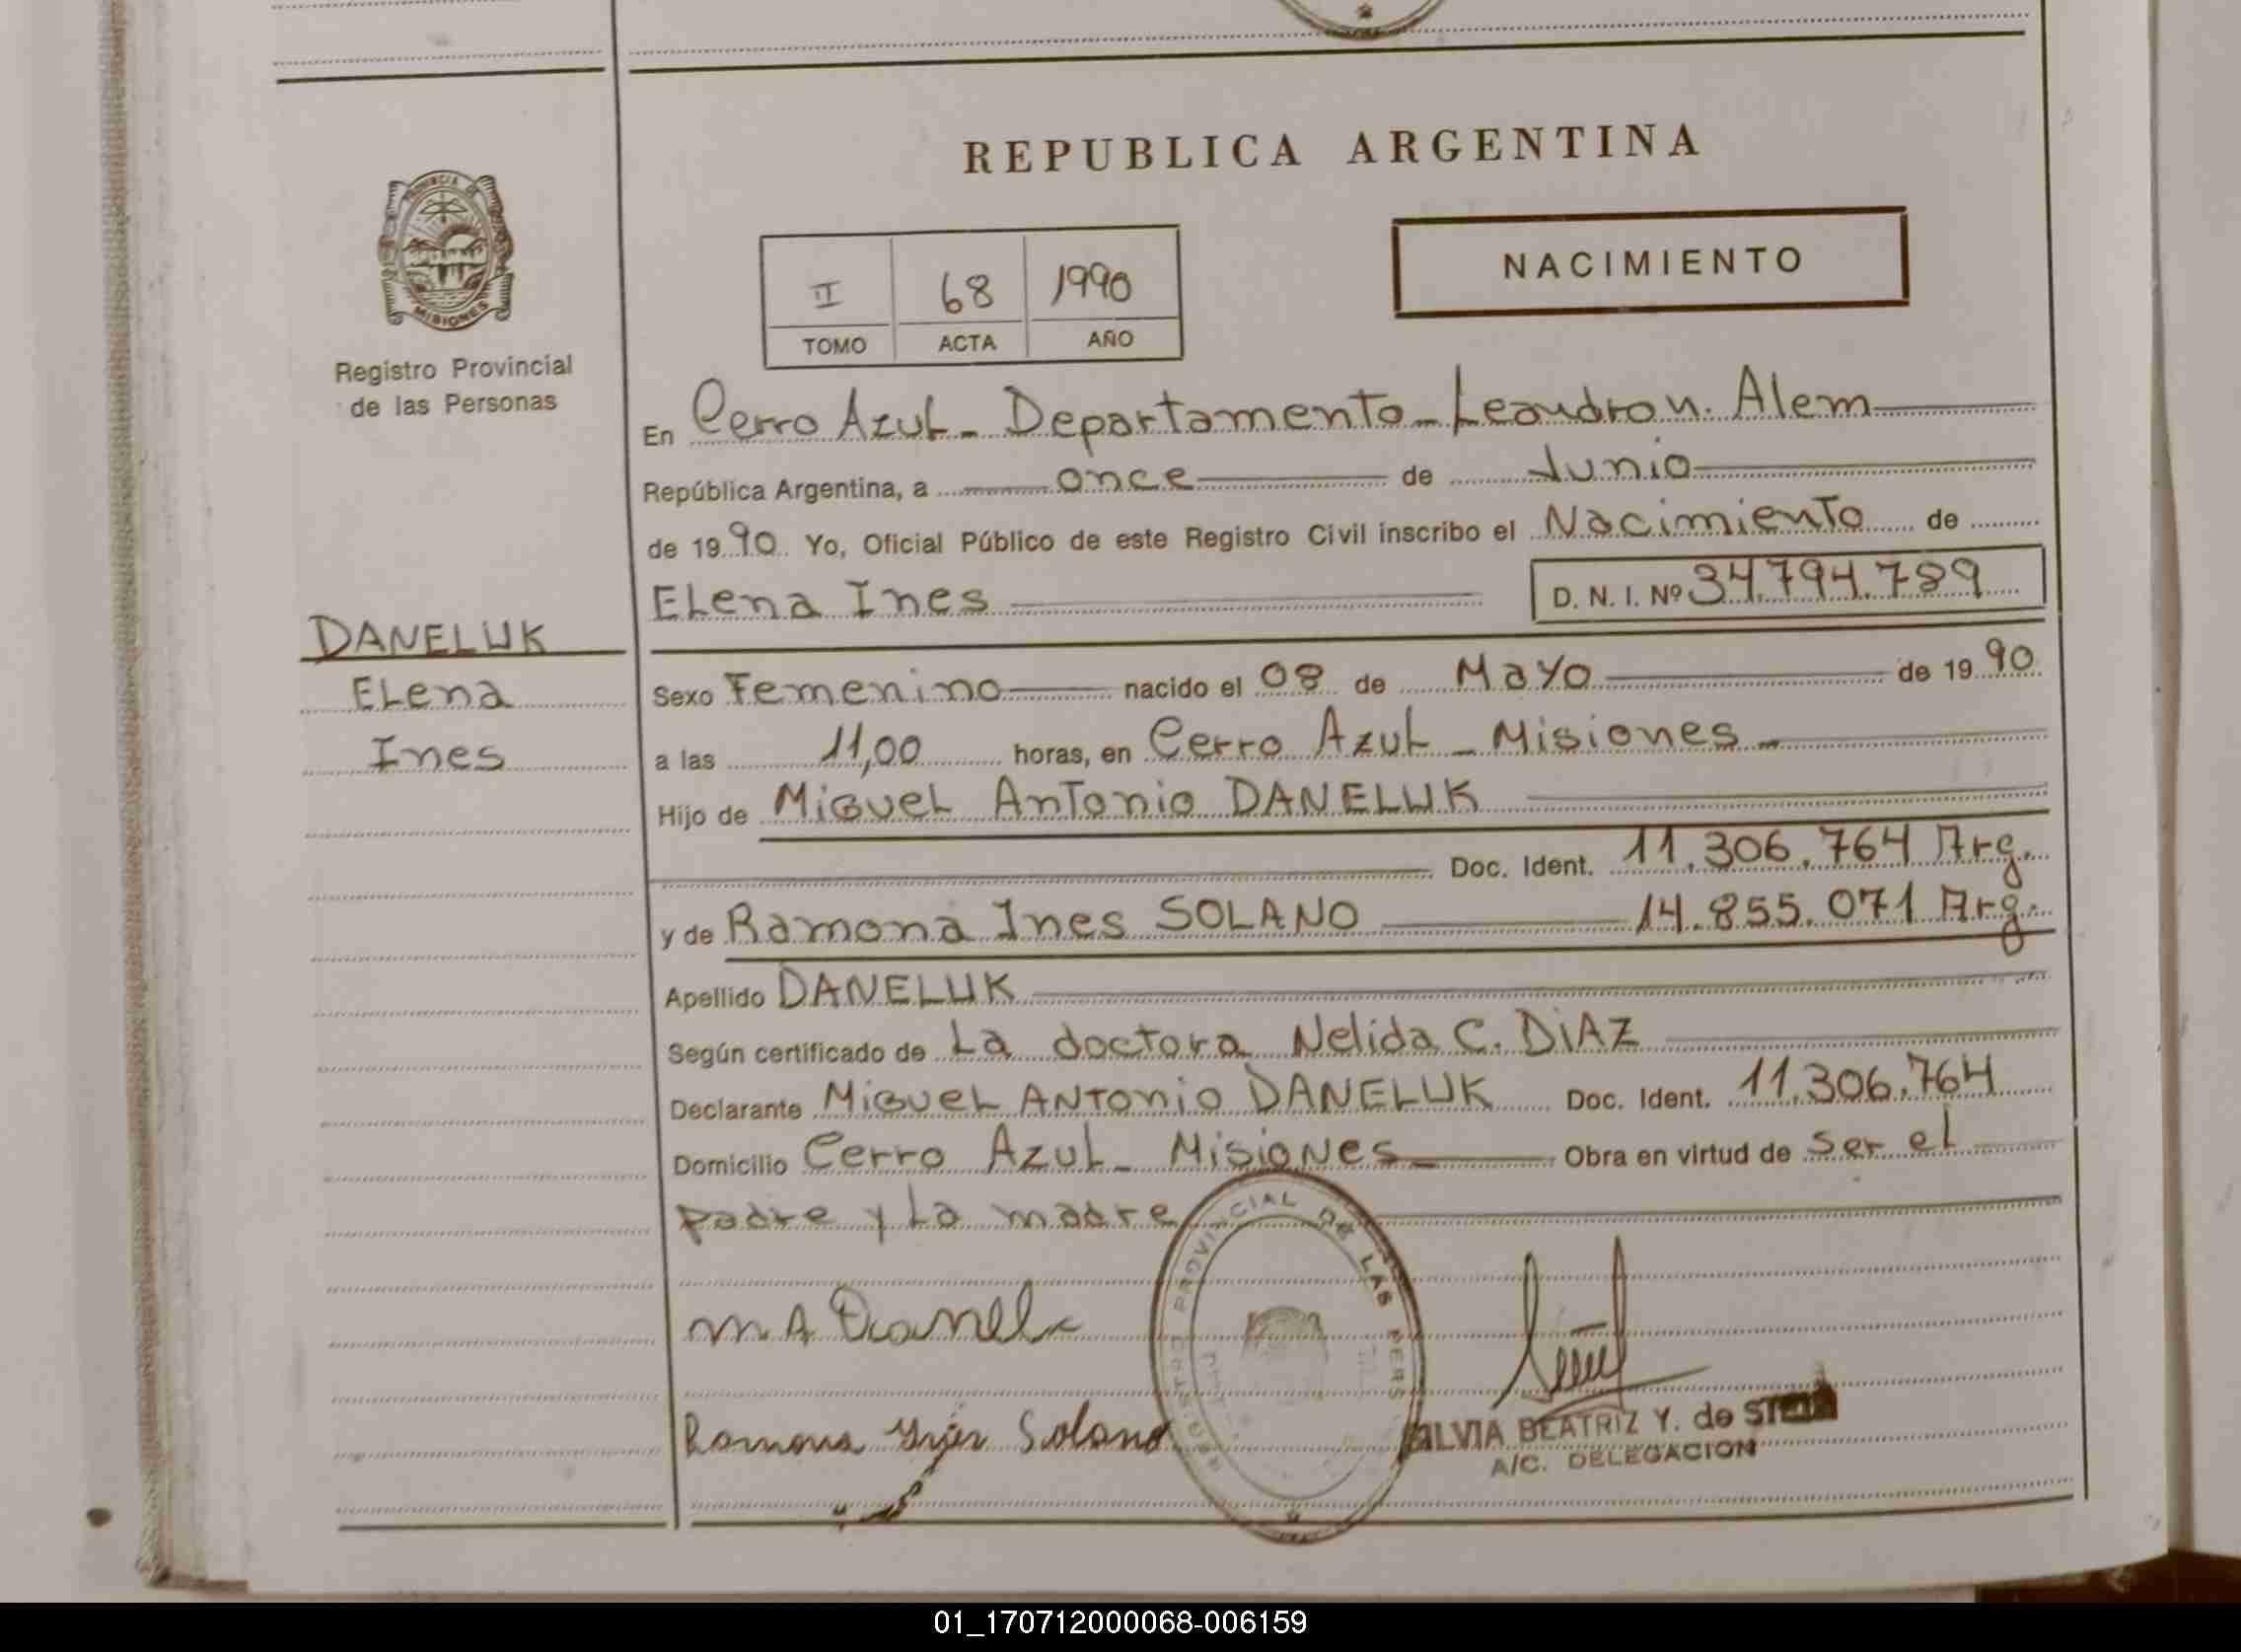 REPUBLICA ARGENTINA
PROVINCIA DE
MISIONES
Registro Provincial
de las Personas
II 68 1990
TOMO ACTA AÑO
NACIMIENTO
En Cerro Azul - Departamento - Leandro N. Alem
República Argentina, a once de Junio
de 1990 Yo, Oficial Público de este Registro Civil inscribo el Nacimiento de
Elena Ines D. N. I. Nº 34.794.789
DANELUK
Elena
Ines
Sexo Femenino nacido el 08 de Mayo de 1990
a las 11,00 horas, en Cerro Azul - Misiones -
Hijo de Miguel Antonio DANELUK
Doc. Ident. 11.306.764 Arg.
y de Ramona Ines SOLANO 14.855.071 Arg.
Apellido DANELUK
Según certificado de La doctora Nelida C. DIAZ
Declarante Miguel Antonio DANELUK Doc. Ident. 11.306.764
Domicilio Cerro Azul - Misiones Obra en virtud de ser el
padre y la madre
PROVINCIAL DE LAS PERS
M A Danelk
Ramona Ines Solano
SILVIA BEATRIZ Y. de
A/C. DELEGACION
01_170712000068-006159